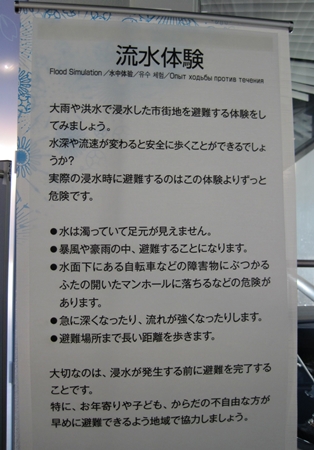 流水体験
Flood Simulation／水中体验／유수 체험／Опыт ходьбы против течения
大雨や洪水で浸水した市街地を避難する体験をし
てみましょう。
水深や流速が変わると安全に歩くことができるでしょ
うか?
実際の浸水時に避難するのはこの体験よりずっと
危険です。
●水は濁っていて足元が見えません。
●暴風や豪雨の中、避難することになります。
●水面下にある自転車などの障害物にぶつかる
ふたの開いたマンホールに落ちるなどの危険が
あります。
●急に深くなったり、流れが強くなったりします。
●避難場所まで長い距離を歩きます。
大切なのは、浸水が発生する前に避難を完了する
ことです。
特に、お年寄りや子ども、からだの不自由な方が
早めに避難できるよう地域で協力しましょう。